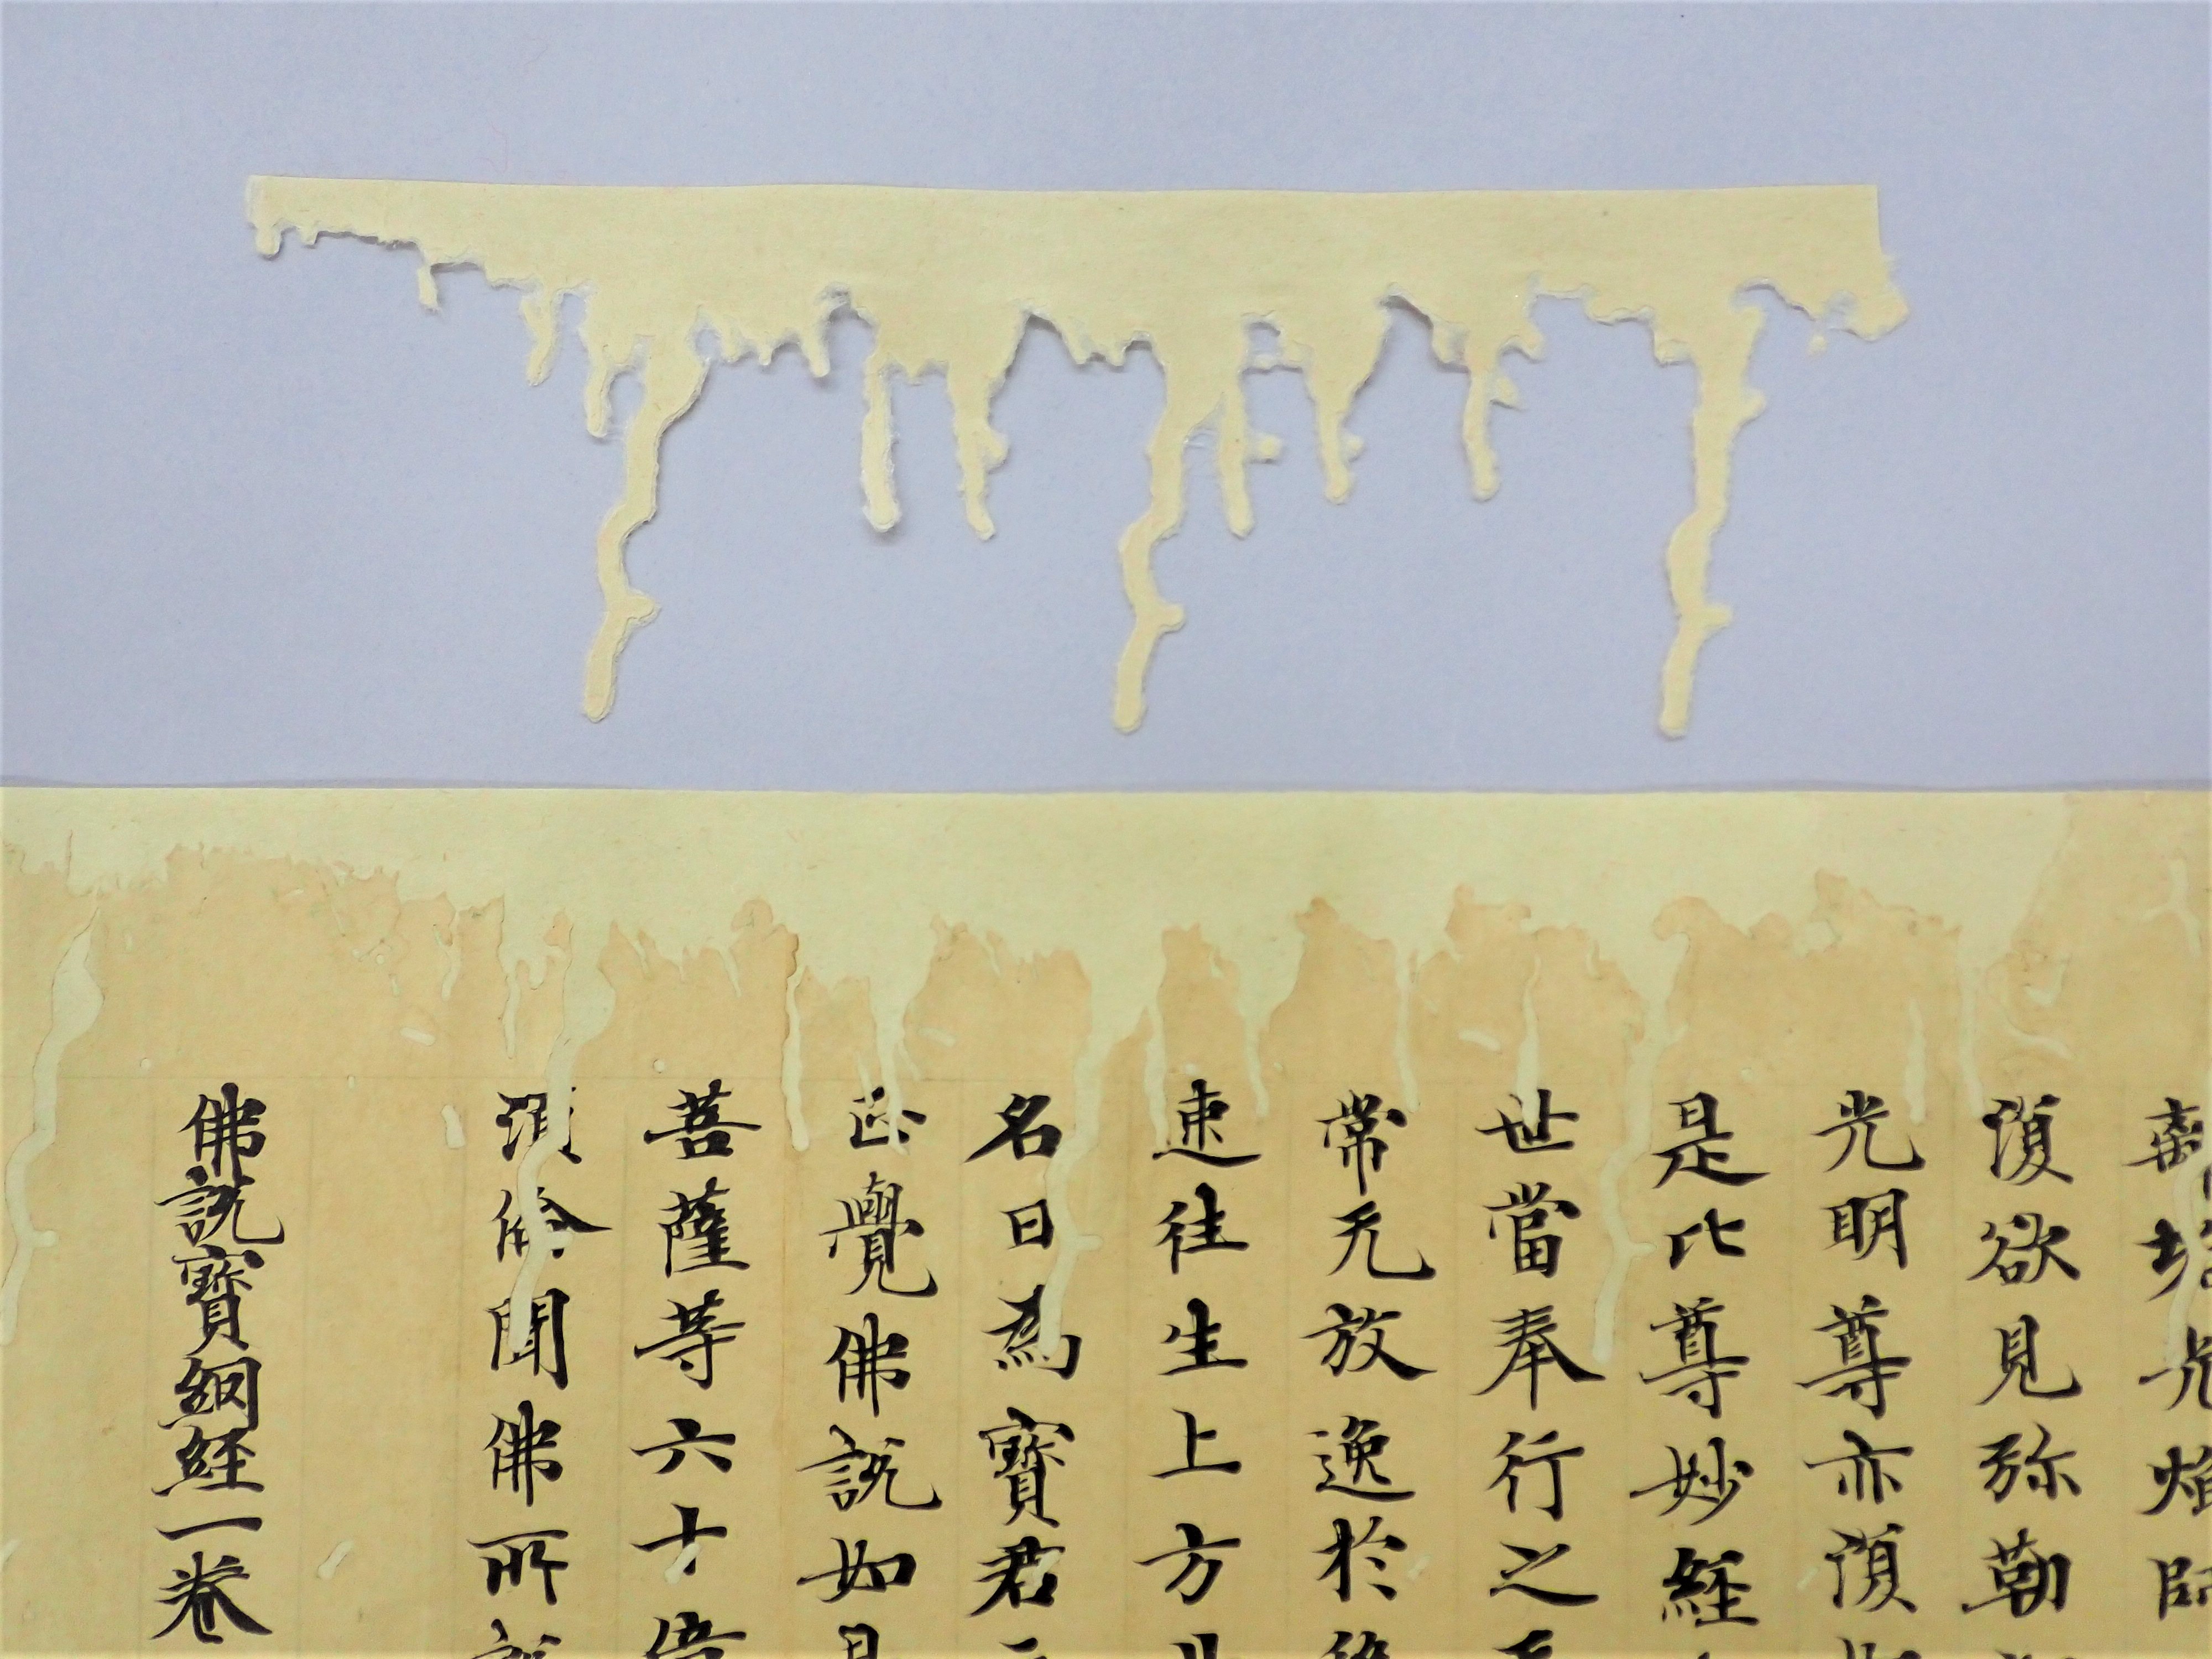 復欲見弥勒
光明尊亦復
是比尊妙經
世當奉行之
常无放逸於
速往生上方
名曰為寶君
正覺佛說如
菩薩等六十億
須倫聞佛所說
佛說寶網經一卷